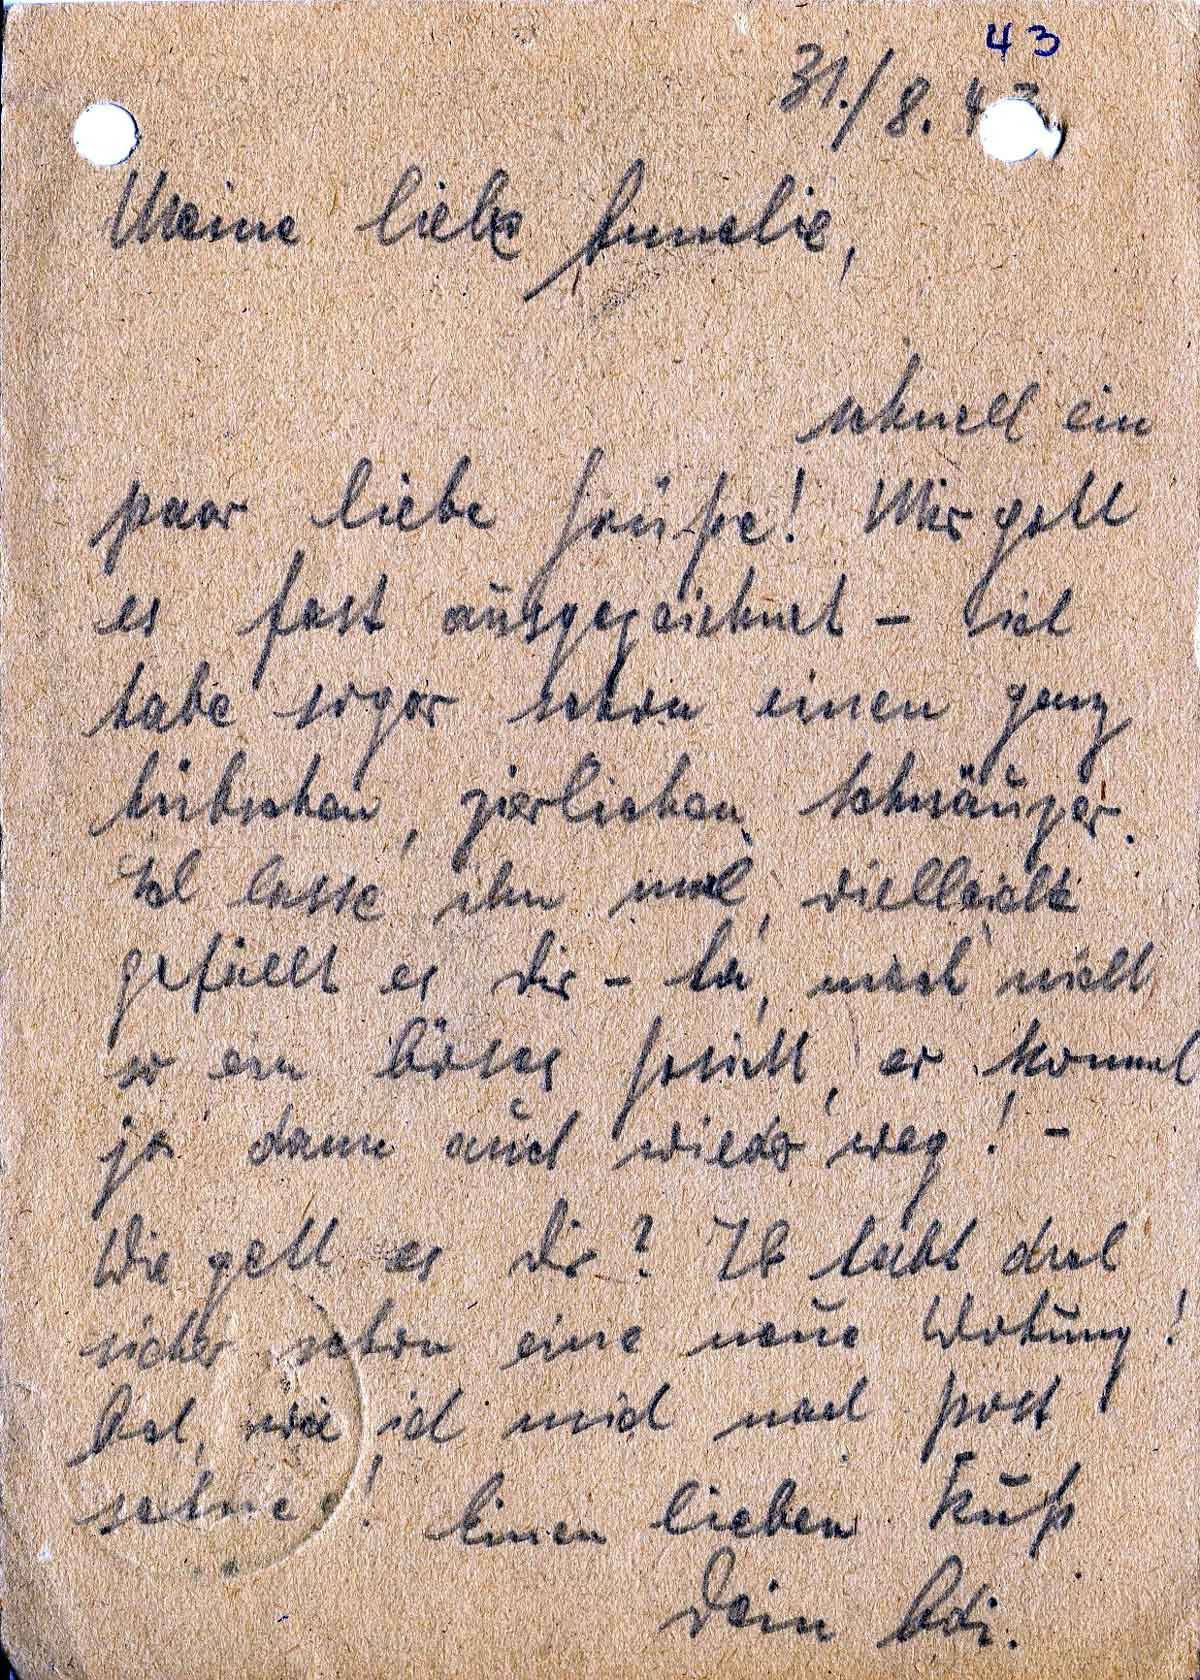 43
31./8.43
Meine liebe Annelie,
schnell ein
paar liebe Grüße! Mir geht
es fast ausgezeichnet – ich
habe sogar schon einen ganz
hübschen, zierlichen Schnäuzer.
Ich lasse ihn mal, vielleicht
gefällt es Dir – Du, mach nicht
so ein böses Gesicht, er kommt
ja dann auch wieder weg! –
Wie geht es Dir? Ihr habt doch
sicher schon eine neue Wohnung!
Ach, wie ich mich nach Post
sehne! Einen lieben Kuß
Dein Adi.